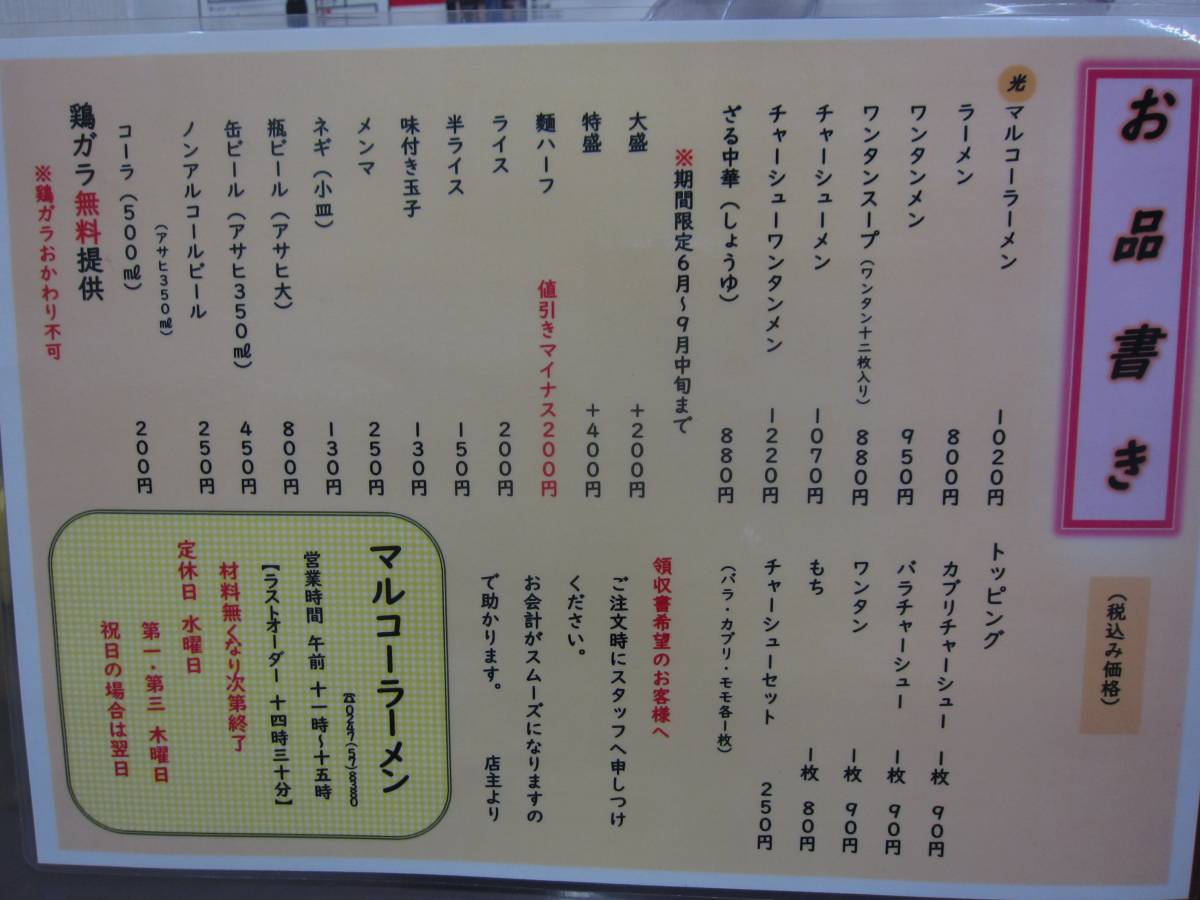 お品書き
（税込み価格）
光 マルコーラーメン 1020円
ラーメン 800円
ワンタンメン 950円
ワンタンスープ（ワンタン十二枚入り） 880円
チャーシューメン 1070円
チャーシューワンタンメン 1220円
ざる中華（しょうゆ） 880円
※期間限定6月～9月中旬まで
大盛 +200円
特盛 +400円
麵ハーフ 値引きマイナス200円
ライス 200円
半ライス 150円
味付き玉子 130円
メンマ 250円
ネギ（小皿） 130円
瓶ビール（アサヒ大） 800円
缶ビール（アサヒ350㎖） 450円
ノンアルコールビール 250円
（アサヒ350㎖）
コーラ（500㎖） 200円
鶏ガラ無料提供
※鶏ガラおかわり不可
トッピング
カブリチャーシュー 1枚 90円
バラチャーシュー 1枚 90円
ワンタン 1枚 90円
もち 1枚 80円
チャーシューセット 250円
（バラ・カブリ・モモ各1枚）
領収書希望のお客様へ
ご注文時にスタッフへ申しつけ
ください。
お会計がスムーズになりますの
で助かります。 店主より
マルコーラーメン
☎0247(57)8380
営業時間 午前 十一時～十五時
【ラストオーダー 十四時三十分】
材料無くなり次第終了
定休日 水曜日
第一・第三 木曜日
祝日の場合は翌日